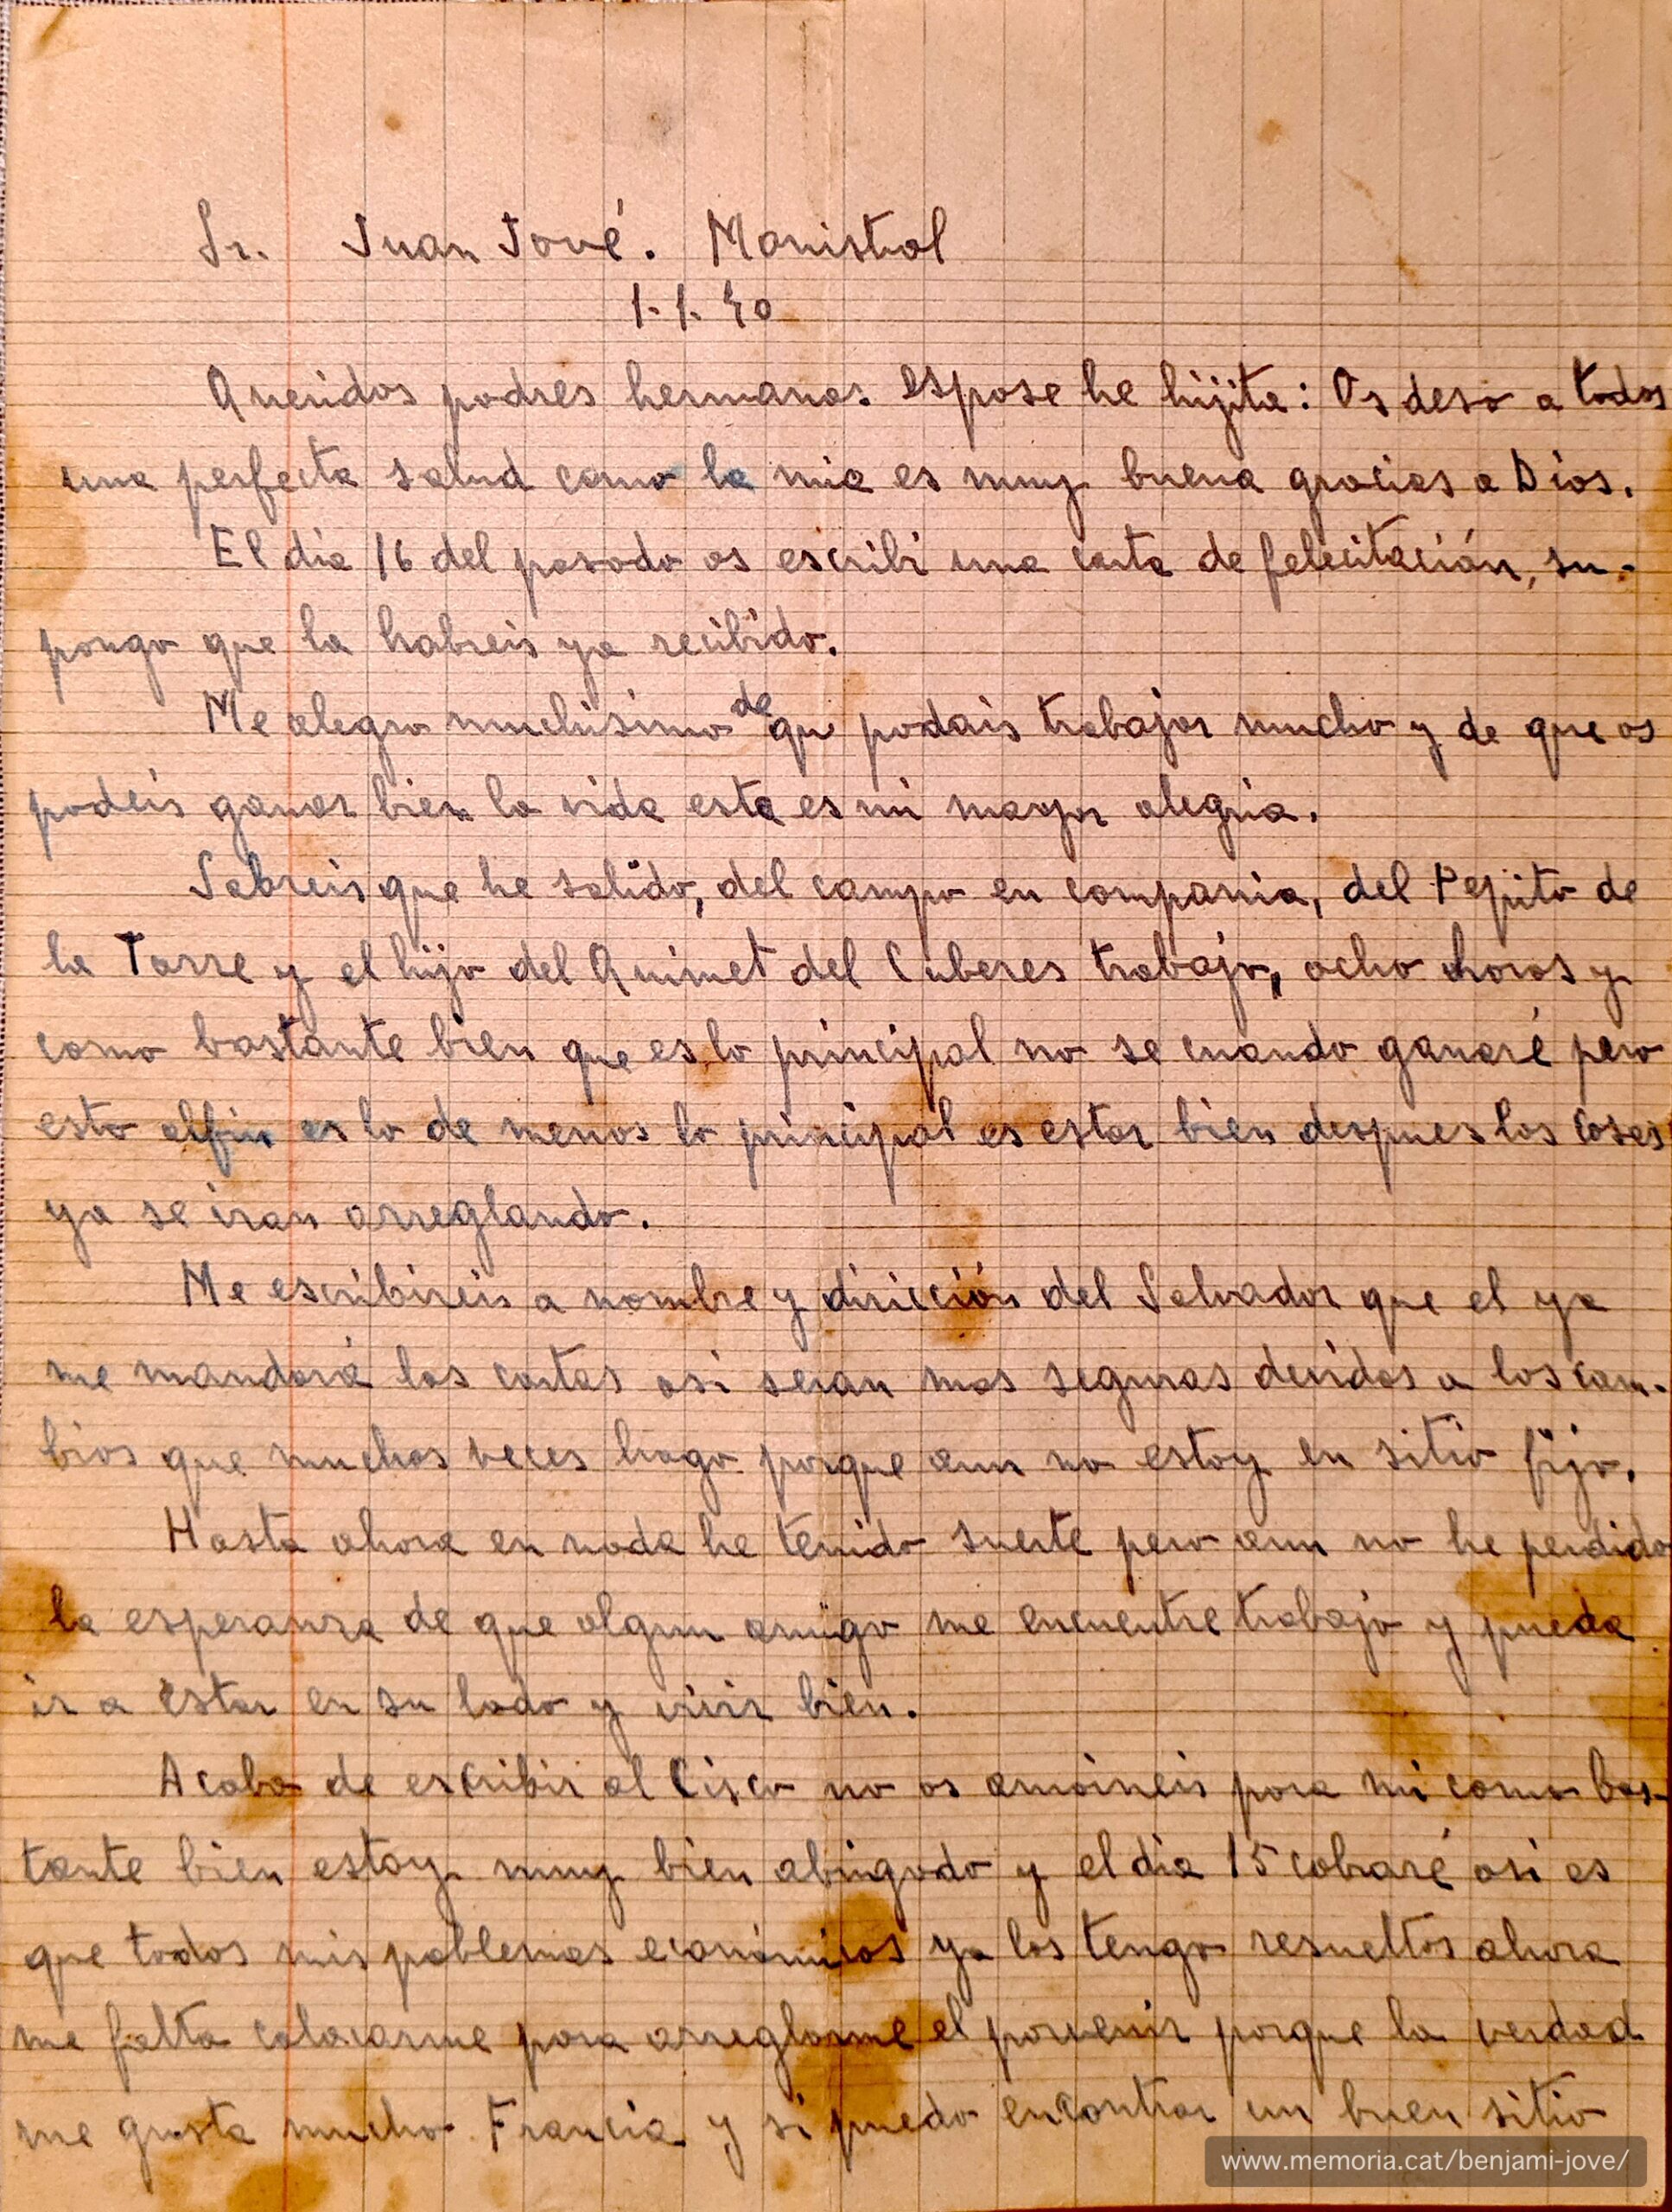 Sr. Juan Jové. Monistrol
1.1.40
Queridos padres hermanos espose he hijita: Os deso a todos
una perfecta salud como la mia es muy buena gracias a Dios.
El dia 16 del pasado os escribi una carta de felecitación, su-
pongo que la habreis ya recibido.
Me alegro muchisimo de que podais trabajar mucho y de que os
podeis ganar bien la vida esta es mi mayor alegria.
Sabreis que he salido, del campo en compania, del Pepito de
la Torre y el hijo del Quimet del Cuberes trabajo, ocho horas y
como bastante bien que es lo principal no se cuando ganaré pero
esto alfin es lo de menos lo principal es estar bien despues las coses
ya se iran arreglando.
Me escribireis a nombre y diricción del Salvador que el ya
me mandará las cartas asi seran mas seguras devidos a los cam-
bios que muchas veces hago porque aun no estoy en sitio fijo.
Hasta ahora en nada he tenido suerte pero aun no he perdido
la esperanza de que algun amigo me encuentre trabajo y pueda
ir a estar en su lado y vivir bien.
Acabo de escribir al Cisco no os amoineis para mi como bas-
tante bien estoy muy bien abrigado y el dia 15 cobraré asi es
que todos mis poblemas económicos ya los tengo resueltos ahora
me falta colocarme para arreglarme el porvenir porque la verdad
me gusta mucho Francia y si puedo encontrar un buen sitio
www.memoria.cat/benjami-jove/